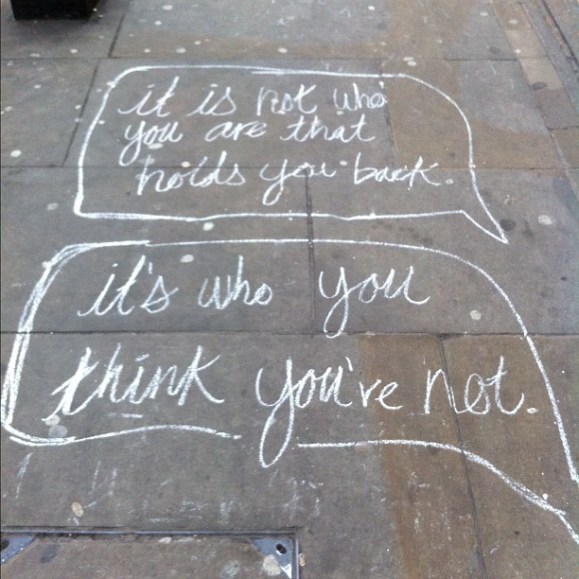 it is not who
you are that
holds you back.
it's who you
think you've not.